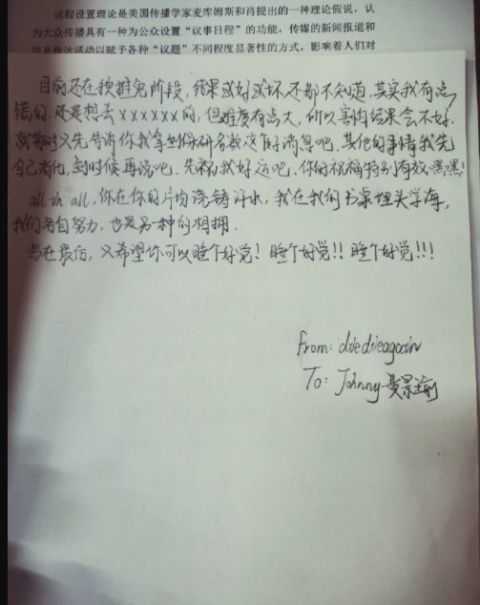 议程设置理论是美国传播学家麦库姆斯和肖提出的一种理论假说，认
为大众传播具有一种为公众设置“议事日程”的功能，传媒的新闻报道和
信息传达活动以赋予各种“议题”不同程度显著性的方式，影响着人们对
目前还在预推免阶段，结果或好或坏还都不知道，其实我有点
懵的，还是想去xxxxxx的，但难度有点大，所以害怕结果会不好。
就暂时又先告诉你我拿到保研名额这个好消息吧，其他的事情我先
自己消化，到时候再说吧。先祝我好运吧，你的祝福特别有效，嘿嘿！
all in all，你在你的片场流铸汗水，我在我的书桌埋头学海，
我们各自努力，也是另一种的相拥。
写在最后，又希望你可以睡个好觉！睡个好觉！！睡个好觉！！！
From: diedieagain
To: Johnny